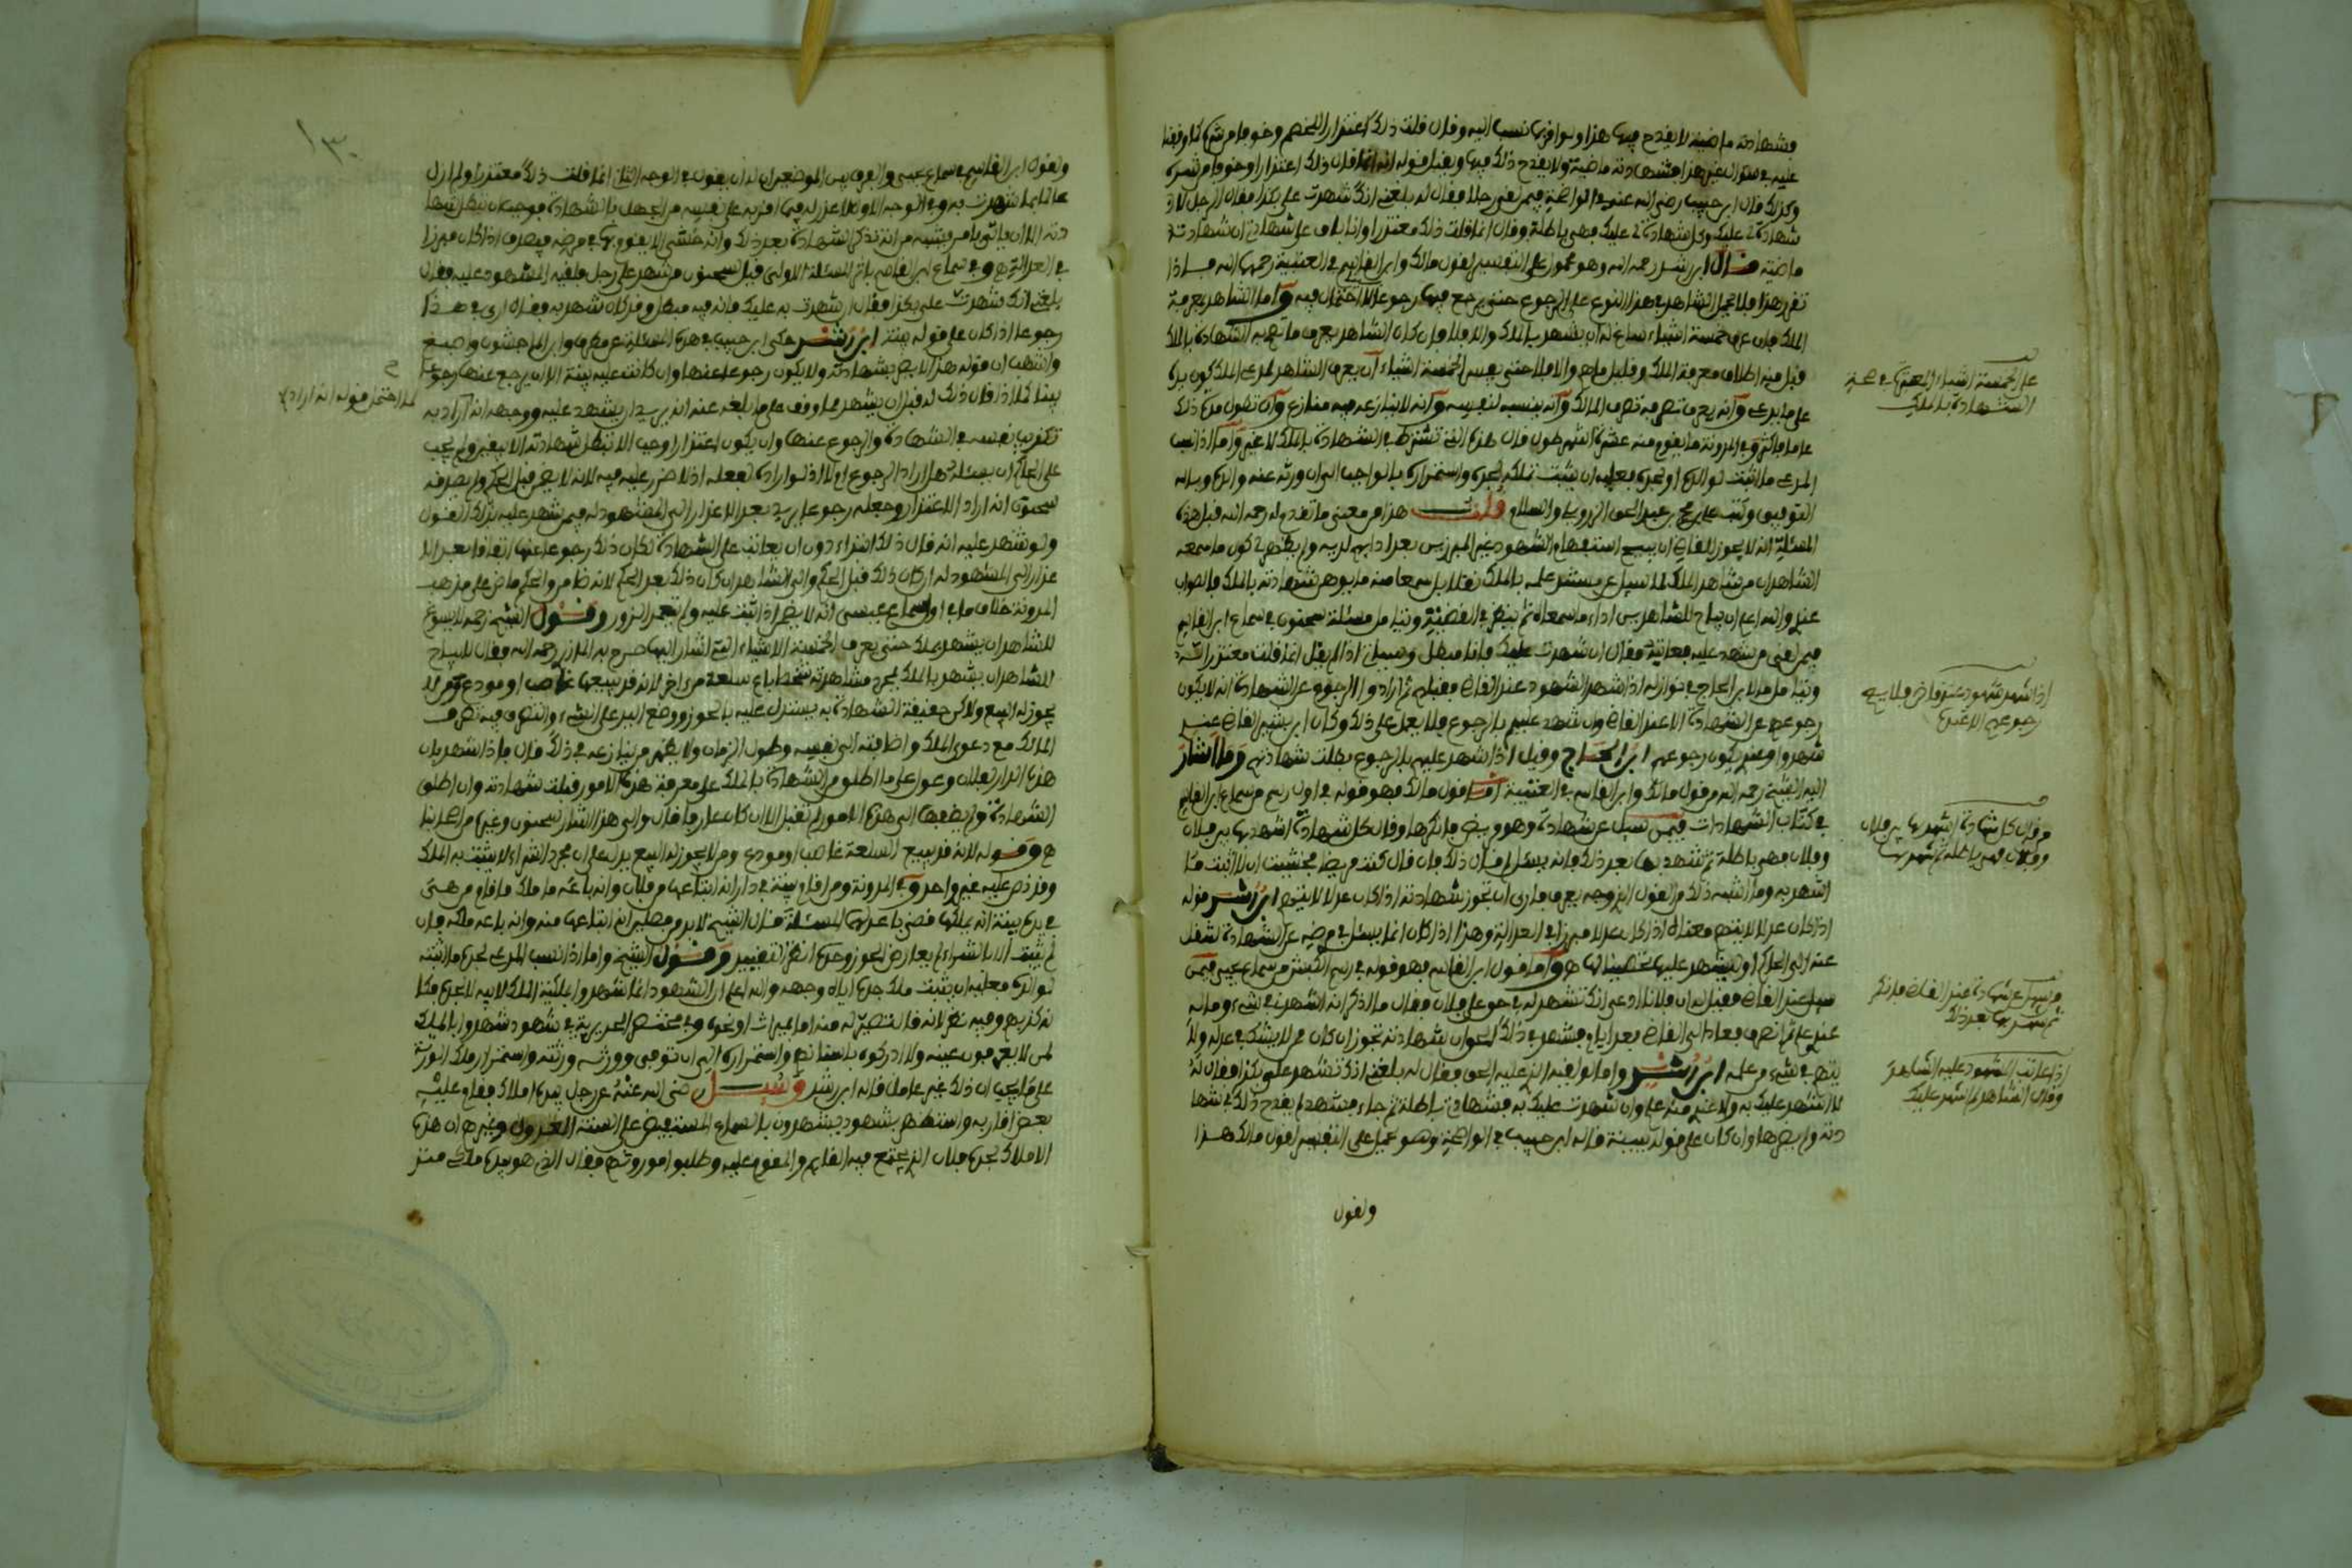 فشهادته ماضية لا يقدح فيها هذا ولو اقر بما نسب اليه وقال قلت ذلك اعتذارا للخصم وخوفا من شره كما وقفنا
عليه في سؤال غير هذا فشهادته ماضية ولا يقدح ذلك فيها ويقبل قوله انه انما قال ذلك اعتذارا وخوفا من شره
وكذلك قال ابن حبيب رضي الله عنه في الواضحة فيمن لقي رجلا فقال له بلغني انك شهدت علي بكذا فقال الرجل لا
شهادة لي عليك وكل شهادة لي عليك فهي باطلة وقال انما قلت ذلك معتذرا وانا باق على شهادتي ان شهادته
ماضية قال ابن رشد رحمه الله وهو محمول على التفسير لقول مالك وابن القاسم في العتبية رحمهما الله فاذا
تقرر هذا فلا يحمل الشاهد في هذا النوع على الرجوع حتى يرجع فيها رجوعا لا احتمال فيه واما الشاهد بمعرفة
الملك فان عرف خمسة اشياء ساغ له ان يشهد بالملك والا فلا فان كان الشاهد يعرف ما تصح به الشهادة بالملك
قبل منه اطلاق معرفة الملك وقليل ما هم والا فلا حتى يفسر الخمسة اشياء ان يعرف الشاهد للمدعي الملك كون يده
على ما يدعي وانه يعرف تصرفه تصرف المالك وانه ينسبه لنفسه وانه لا ينازعه فيه منازع وان تطول مدة ذلك
عاما فاكثر وفي المدونة ما يقوم منه عشرة اشهر طول فان هذه التي تشترط في الشهادة بالملك لا غير واما اذا نسب
المدعي ما اثبت لوالده او لجده فعليه ان يثبت تملك لجده واستمراره بالواجب الى ان ورثه عنه والده وبالله
التوفيق وكتب علي بن محمد بن عبد الحق الزرويلي والسلام قلت هذا من معنى ما تقدم له رحمه الله قبل هذه
المسئلة انه لا يجوز للقاضي ان يبيح استفهام الشهود غير المبرزين بعد ادايهم لديه ولم يظهر لي كون ما سمعه
الشاهدان من شاهد الملك
عندي والله اعلم ان يباح للشاهدين اداء ما سمعاه ثم ينظر في القضية وتامل مسئلة سحنون في سماع ابن القاسم
فيمن لقي من شهد عليه فعاتبه فقال ان شهدت عليك فانا مبطل وسياتي اذا لم يقل انما قلت معتذرا
وتامل ما لابن الحاج في نوازله اذا شهد الشهود عند القاضي فقبلهم ثم ارادوا الرجوع عن الشهادة انه لا يكون
رجوعهم عن الشهادة الا عند القاضي وان شهد عليهم بالرجوع فلا يعمل على ذلك وكان ابن بشير القاضي عنده
شهدوا وعنده يكون رجوعهم ابن الحاج وقيل اذا شهد عليهم بالرجوع بطلت شهادتهم وما اشار
اليه الشيخ رحمه الله من قول مالك وابن القاسم في العتبية اما قول مالك فهو قوله في اول رسم من سماع ابن القاسم
في كتاب الشهادات فيمن سئل عن شهادة وهو مريض فانكرها وقال كل شهادة اشهد بها بين فلان
وفلان فهي باطلة ثم شهد بها بعد ذلك فانه يسئل لم قال ذلك فان قال كنت مريضا فخشيت ان لا اثبت ما
اشهد به وما اشبه ذلك من القول الذي وجه يعرف فارى ان تجوز شهادته اذا كان عدلا لا يتهم ابن رشد قوله
اذا كان عدلا لا يتهم معناه اذا كان عدلا مبرزا في العدالة وهذا اذا كان انما يسئل في مرضه عن الشهادة لتنقل
عنه الى الحاكم او ليشهد عليها تحصينا لها هو واما قول ابن القاسم فهو قوله في رسم الكبش من سماع يحيى فيمن
سئل عند القاضي فقيل له ان فلانا ادعى انك تشهد له في حق على فلان فقال ما اذكر انه اشهدني بشيء وما له
عندي علم ثم انصرف فعاد الى القاضي بعد ايام فشهد في ذلك الحق ان شهادته تجوز ان كان ممن لا يشك في عدله ولا
يتهم في شيء من علمه ابن رشد واما لو لقيه الذي عليه الحق فقال له بلغني انك تشهد علي بكذا فقال له
لا اشهد عليك به ولا عندي منه علم وان شهدت عليك به فشهادتي باطلة ثم جاء فشهد لم يقدح ذلك في شها
دته ولم يضرها وان كان على قوله بينة قاله ابن حبيب في الواضحة وهو محمل على التفسير لقول مالك هذا
ولقول
على الخمسة اشياء المعتبرة في صحة
الشهادة بالملك
اذا شهد شهود عند قاض فلا يصح
رجوعهم الا عنده
من قال كل شهادة اشهد بها بين فلان
وفلان فهي باطلة ثم شهد بها
من سئل عن شهادة عند القاضي فانكر
ثم شهد بها بعد ذلك
اذا عاتب المشهود عليه الشاهد
وقال الشاهد لم اشهد عليك
١٣٠
ولقول ابن القاسم في سماع عيسى والفرق بين الموضعين ان له ان يقول في الوجه الثاني انما قلت ذلك معتذرا ولم ازل
عالما بما شهدت به وفي الوجه الاول لا عذر له فيما اقر به على نفسه من الجهل بالشهادة فوجب ان تبطل شها
دته الا ان ياتي بامر يشبه من انه تذكر الشهادة بعد ذلك وانه خشي الا يقوم بها في مرضه فيصدق اذا كان مبرزا
في العدالة هو وفي سماع ابن القاسم باثر المسئلة الاولى قيل لسحنون من شهد على رجل فلقيه المشهود عليه فقال
بلغني انك شهدت علي بكذا فقال ان شهدت به عليك فانه فيه مبطل وقد كان شهد به فقال ارى في هذا
رجوعا اذا كان على قوله بينة ابن رشد حكى ابن حبيب في هذه المسئلة عن مطرف وابن الماجشون واصبغ
وانتهب ان قوله هذا لا يضر بشهادته ولا يكون رجوعا عنها وان كانت عليه بينة الا ان يرجع عنها رجوعا
لما احتمل قوله انه اراد به
بينا كلما اذا قال ذلك له قبل ان يشهد
تكذيب نفسه في الشهادة والرجوع عنها وان يكون اعتذارا وجب الا تبطل شهادته الا بيقين ولم يجب
على الحاكم ان يسئله هل اراد الرجوع ام لا اذ لو اراده لفعله اذ لا ضرر عليه فيه لانه لا يضر قبل الحكم ولم يصدقه
سحنون انه اراد الاعتذار وجعله رجوعا
ولو شهد عليه انه قال ذلك ابتداء دون ان يعاتب على الشهادة لكان ذلك رجوعا عنها اتفاقا بعد الا
عذار الى المشهود له ان كان ذلك قبل الحكم والى الشاهد ان كان ذلك بعد الحكم لانه ظاهر والحكم ماض على مذهب
المدونة خلاف ما في اول سماع عيسى انه لا يضمن اذا اشبه عليه ولم يتعمد الزور وقول الشيخ رحمه لا يسوغ
للشاهد ان يشهد بملك حتى يعرف الخمسة الاشياء التي اشار اليها صرح به المازري رحمه الله فقال لا يباح
للشاهد ان يشهد بالملك بمجرد مشاهدته شخصا باع سلعة من اخر لانه قد يبيعها غاصب او مودع ومن لا
يجوز له البيع ولاكن حقيقة الشهادة به يستدل عليه بالحوز ووضع اليد على الشيء والتصرف فيه تصرف
المالك مع دعوى الملك واضافته الى نفسه وطول الزمان ولا يظهر من ينازعه في ذلك قال فاذا شهد بان
هذه الدار لفلان وعول على ما اطلق من الشهادة بالملك على معرفة هذه الامور قبلت شهادته وان اطلق
الشهادة ولم يضفها الى هذه الامور لم تقبل الا ان كان عارفا قال والى هذا اشار سحنون وغيره من اصحابنا
هو وقوله لانه قد يبيع السلعة غاصب او مودع ومن لا يجوز له البيع يدل على ان مجرد الشراء لا يثبت به الملك
وقد نص عليه غير واحد وفي المدونة ومن اقام بينة في دار انه ابتاعها من فلان وانه باعه ما ملك ما اقام من هي
في يده بينة انه يملكها قضي باعدلها المسئلة قال الشيخ
لم يثبت الا بالشراء لم يعارض الحوز وحده انظر التقييد وقول الشيخ واما اذا نسب المدعي لجده ما اثبته
لوالده فعليه ان يثبت ملك جده اياه وجهه والله اعلم ان الشهود انما شهدوا بملكية الملك لابيه لا لجده فكا
نه كذبهم وفيه نظر لانه قال تصيره له منه اما بميراث او نحوه وفي مختصر الجزيرية في شهود شهدوا بالملك
لمن لا يعرفون عينه ولا ادركوه باستناده واستمراره الى ان توفي وورثه ورثته واستمرار ملك الورثة
على ما يجب ان ذلك غير عامل قاله ابن رشد وسئل رضي الله عنه عن رجل بيده املاك فقام عليه
بعض اقاربه واستظهر بشهود يشهدون بالسماع المستفيض على السنة العدول وغيرهم ان هذه
الاملاك لجده فلان الذي يجتمع فيه القايم والمقوم عليه وطلبوا موروثهم فقال الذي هو بيده ملكي منذ